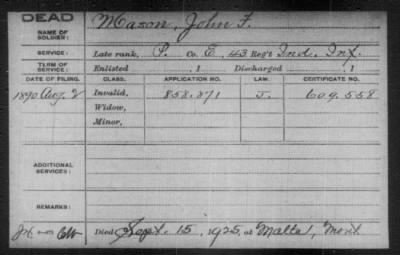 DEAD
NAME OF SOLDIER: Mason, John F.
SERVICE: Late rank, P. Co. E, 43 Reg't Ind. Inf.
TERM OF SERVICE: Enlisted , 1 Discharged , 1
DATE OF FILING. CLASS. APPLICATION NO. LAW. CERTIFICATE NO.
1890 Aug. 2 Invalid, 858.871 J. 609.558
Widow,
Minor,
ADDITIONAL SERVICES:
REMARKS:
Died Sept. 15, 1925, at Malta, Mont.